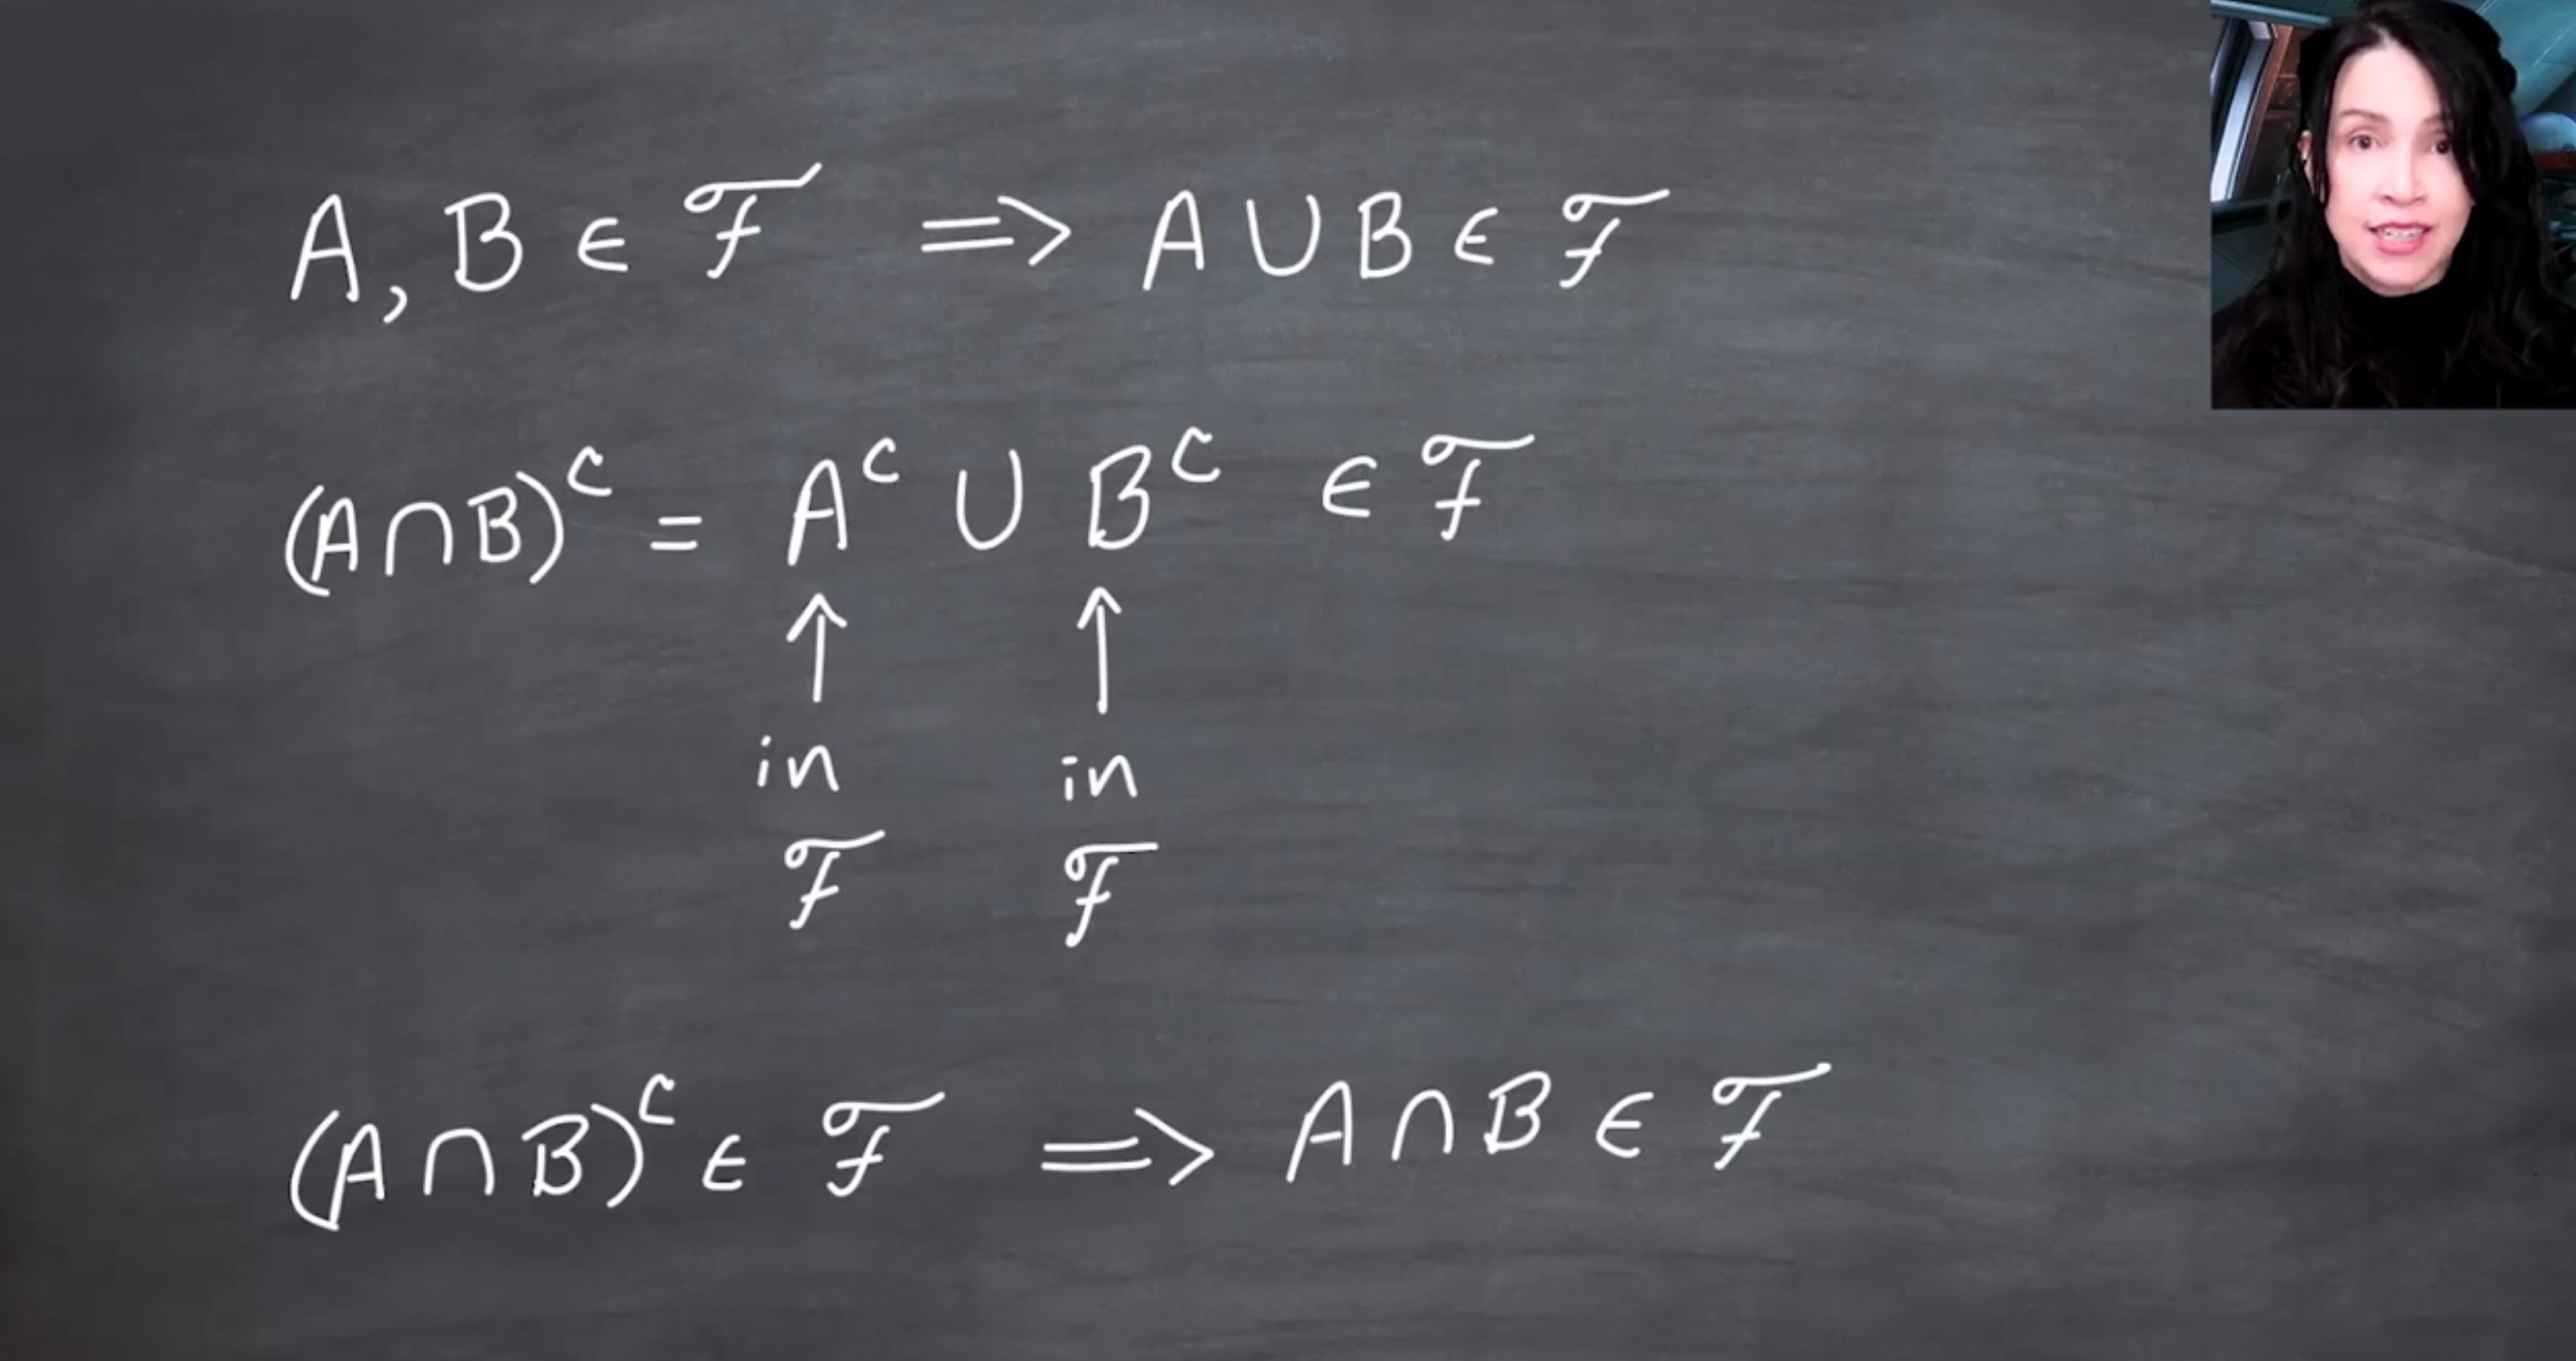 A, B ∈ ℱ ⟹ A ∪ B ∈ ℱ
(A ∩ B)ᶜ = Aᶜ ∪ Bᶜ ∈ ℱ
↑ ↑
in in
ℱ ℱ
(A ∩ B)ᶜ ∈ ℱ ⟹ A ∩ B ∈ ℱ